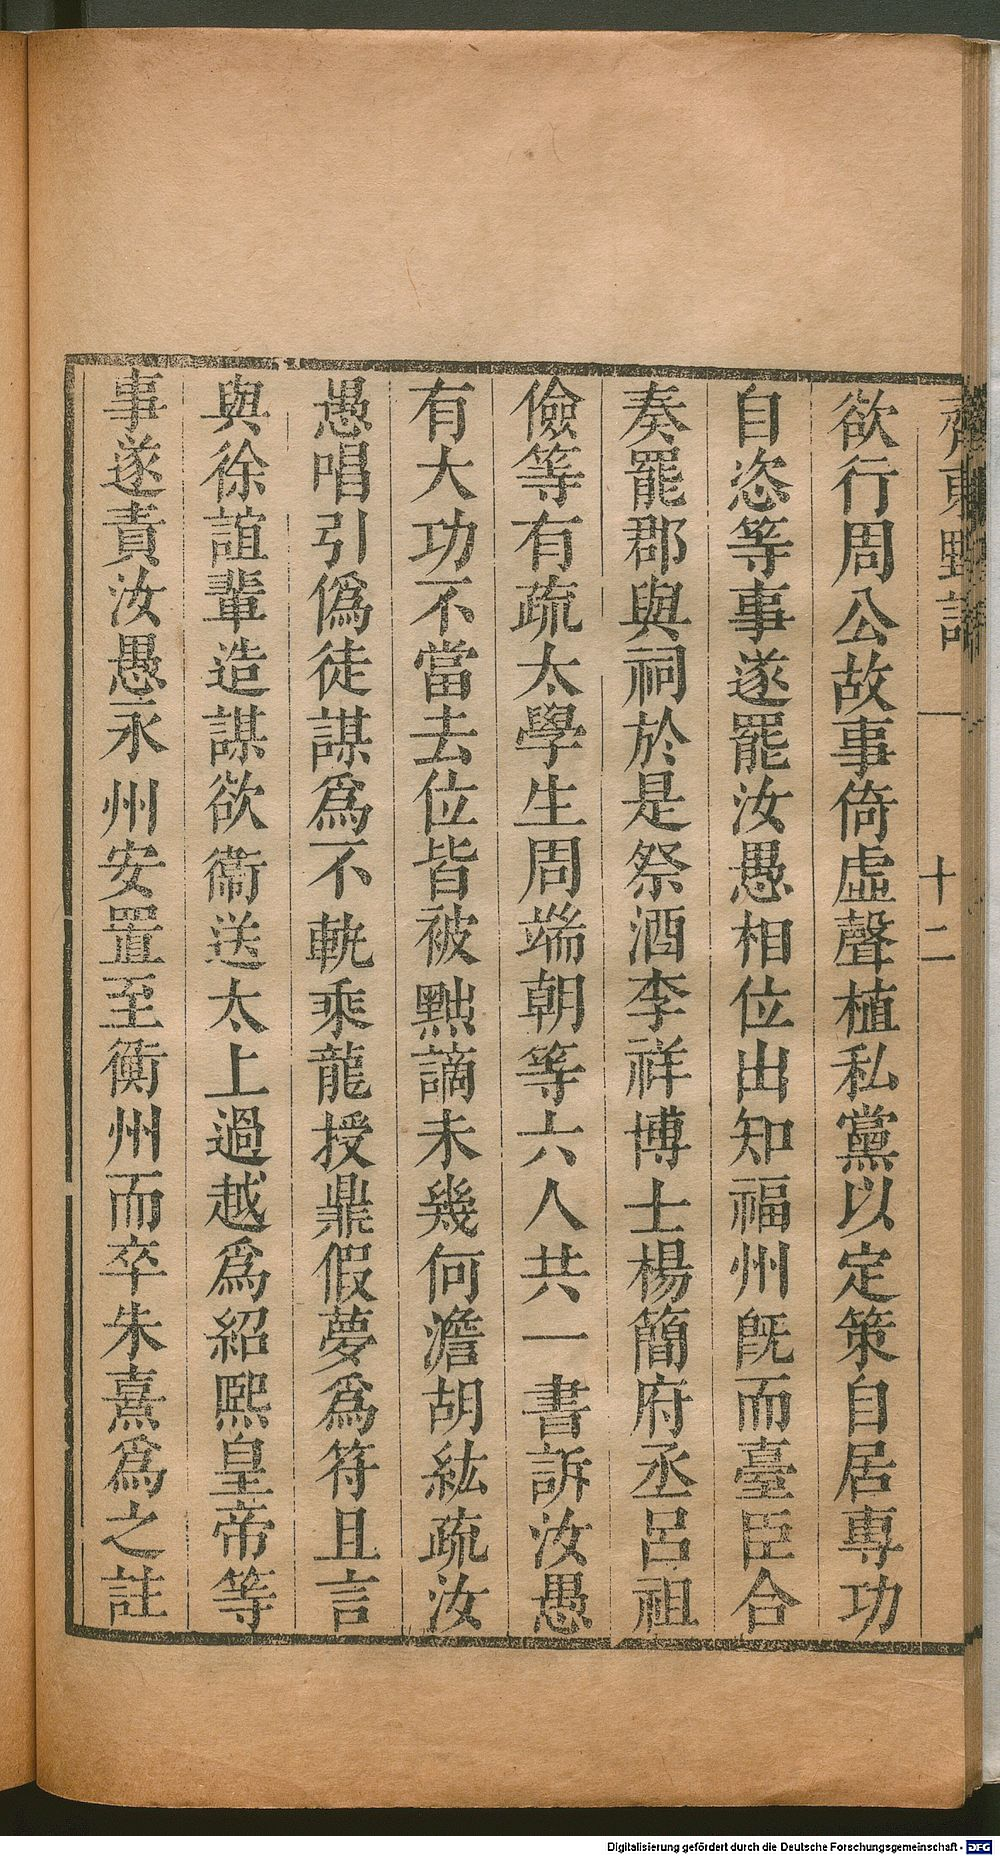 齊東野語 一 十二
欲行周公故事倚虛聲植私黨以定策自居專功
自恣等事遂罷汝愚相位出知福州旣而臺臣合
奏罷郡與祠於是祭酒李祥博士楊簡府丞呂祖
儉等有疏太學生周端朝等六人共一書訴汝愚
有大功不當去位皆被黜謫未幾何澹胡紘疏汝
愚唱引僞徒謀爲不軌乘龍授鼎假夢爲符且言
與徐誼輩造謀欲衞送太上過越爲紹熙皇帝等
事遂責汝愚永州安置至衡州而卒朱熹爲之註
Digitalisierung gefördert durch die Deutsche Forschungsgemeinschaft - DFG